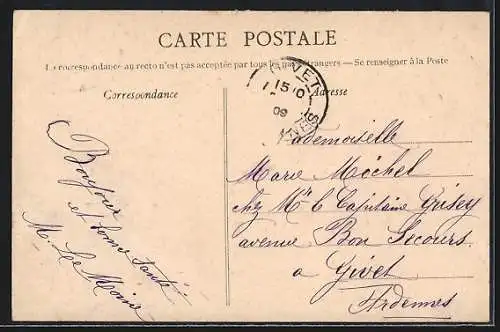 CARTE POSTALE
La correspondance au recto n'est pas acceptée par tous les pays étrangers. — Se renseigner à la Poste
Correspondance
Adresse
Bonjour
et bonne santé
M. Le Moine
GIVET
15
09
Mademoiselle
Marie Michel
chez Mr le Capitaine Grisey
avenue Bon Secours
à Givet
Ardennes